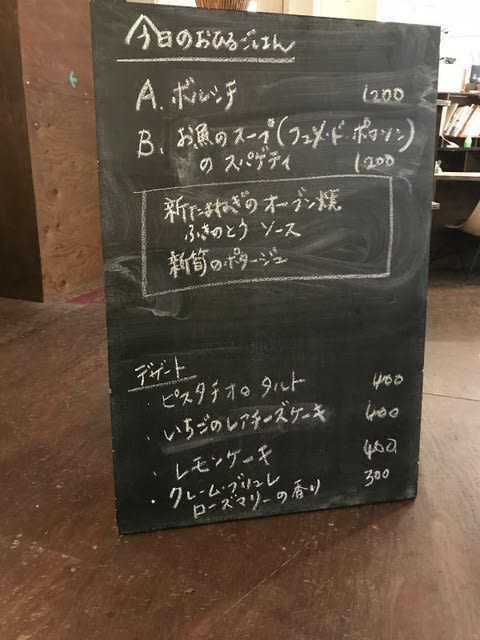 今日のおひるごはん
A. ボルシチ 1200
B. お魚のスープ(フュメ・ド・ポワソン)
のスパゲティ 1200
新たまねぎのオーブン焼
ふきのとう ソース
新筍のポタージュ
デザート
・ピスタチオのタルト 400
・いちごのレアチーズケーキ 400
・レモンケーキ 400
・クレーム・ブリュレ 300
ローズマリーの香り